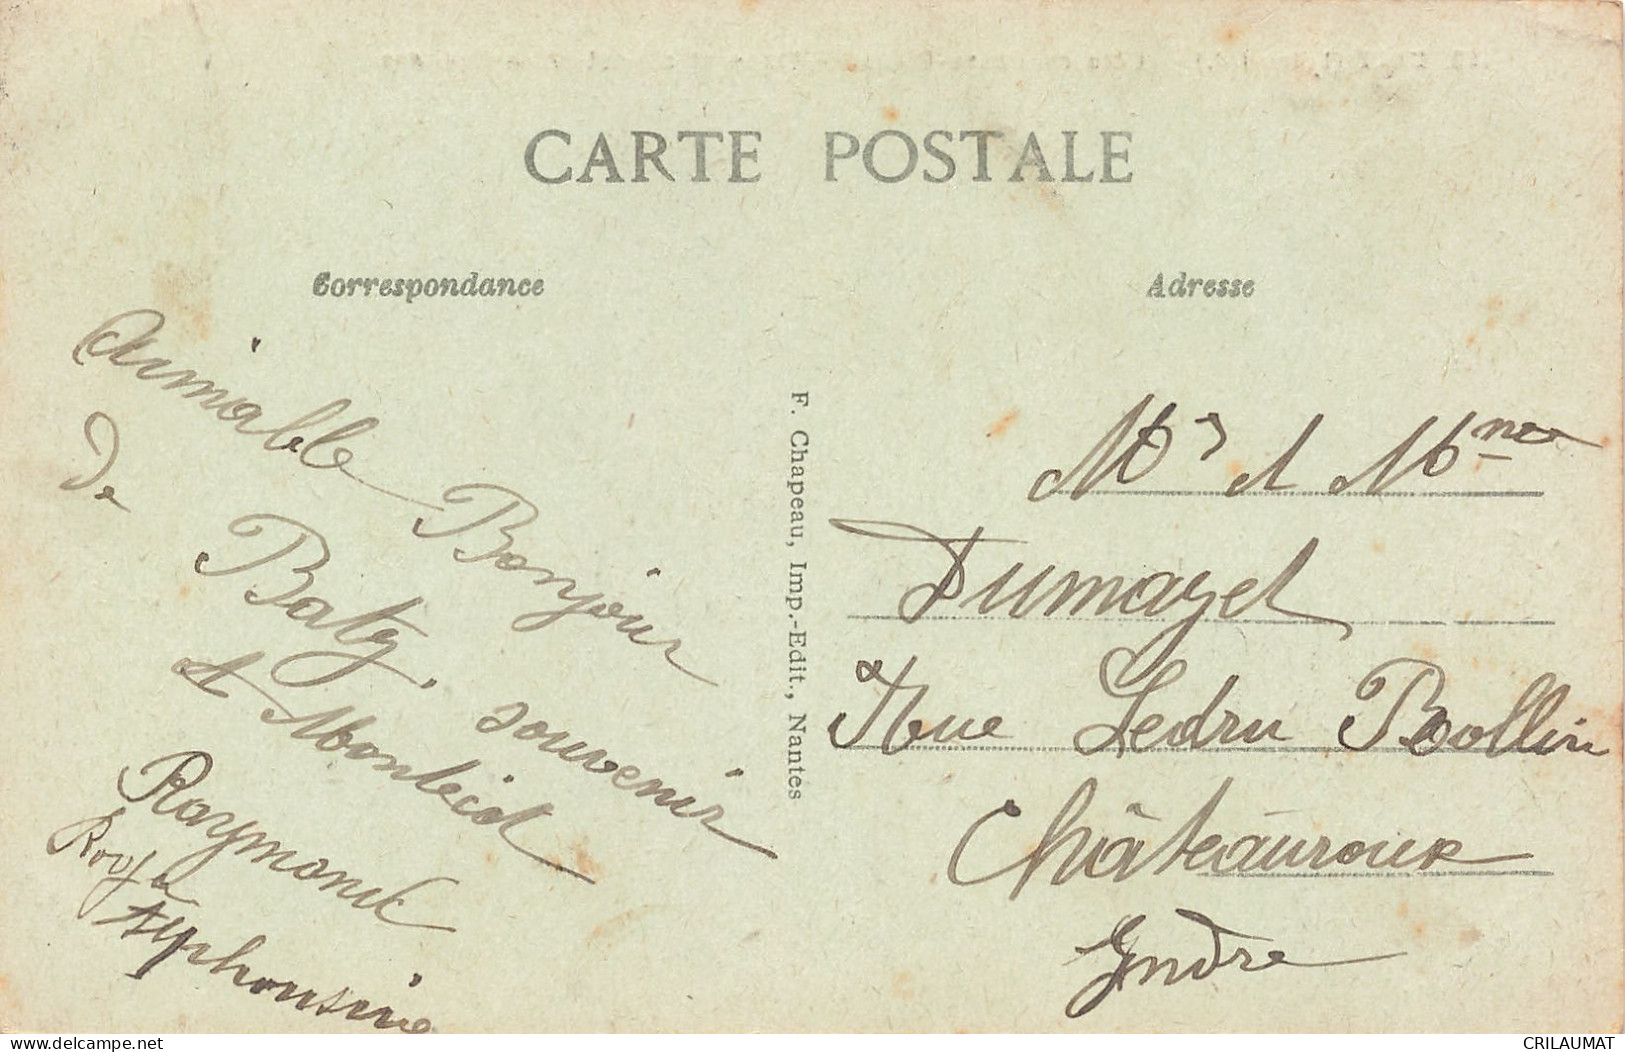 CARTE POSTALE
Correspondance
Adresse
aimable Bonjour
de Batz, souvenir
Raymond
Roger
Alphonsine
F. Chapeau, Imp.-Edit., Nantes
Mr et Mme
Dumazet
Rue Ledru Rollin
Châteauroux
Indre
delcampe.net
CRILAUMAT